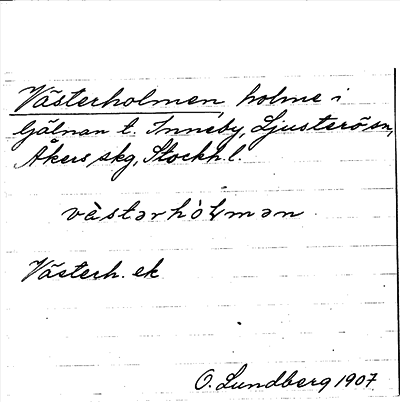 Västerholmen, holme i
Gälnan t. Inneby, Ljusterö sn,
Åkers skg, Stockh. l.
västərhòlmən
Västerh. ek
O. Lundberg 1907